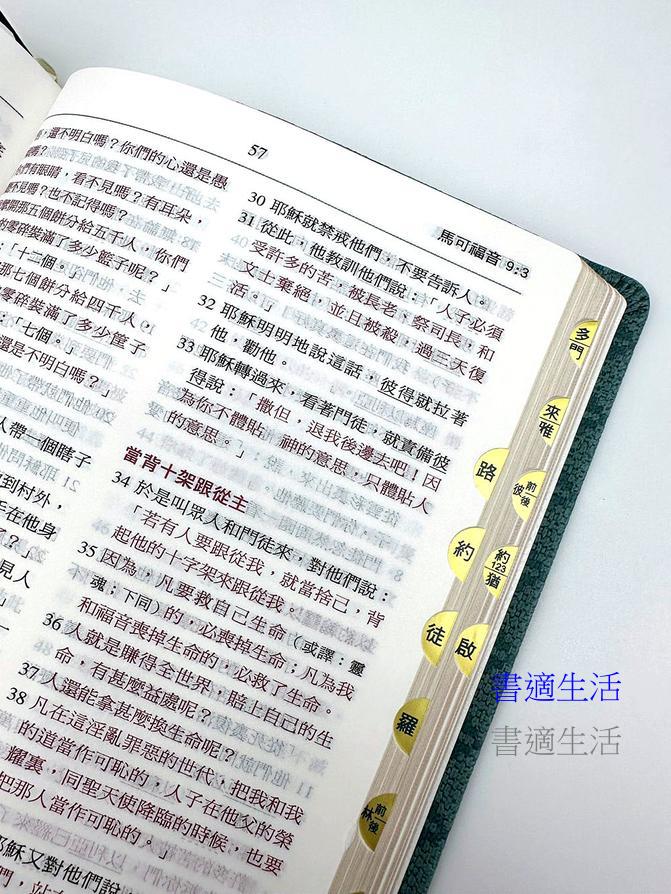 57
馬可福音 9:3
還不明白嗎？你們的心還是愚
看不見嗎？有耳朵，
不見嗎？也不記得嗎？
擘開那五個餅分給五千人，你們
的零碎裝滿了多少籃子呢？」
「十二個。」
那七個餅分給四千人，
零碎裝滿了多少筐子
「七個。」
還是不明白嗎？」
人帶一個瞎子
到村外，
30 耶穌就禁戒他們，不要告訴人。
31 從此，他教訓他們說：「人子必須
受許多的苦，被長老、祭司長，和
文士棄絕，並且被殺，過三天復
活。」
32 耶穌明明地說這話，彼得就拉著
他，勸他。
33 耶穌轉過來，看著門徒，就責備彼
得說：「撒但，退我後邊去吧！因
為你不體貼　神的意思，只體貼人
的意思。」
當背十架跟從主
34 於是叫眾人和門徒來，對他們說：
「若有人要跟從我，就當捨己，背
起他的十字架來跟從我。
35 因為，凡要救自己生命（或譯：靈
魂；下同）的，必喪掉生命；凡為我
和福音喪掉生命的，必救了生命。
36 人就是賺得全世界，賠上自己的生
命，有甚麼益處呢？
37 人還能拿甚麼換生命呢？
38 凡在這淫亂罪惡的世代，把我和我
的道當作可恥的，人子在他父的榮
耀裏，同聖天使降臨的時候，也要
把那人當作可恥的。」
耶穌又對他們說
多
門
來
雅
路
彼
前
後
約
約
123
猶
徒
啟
羅
林
前
後
書適生活
書適生活